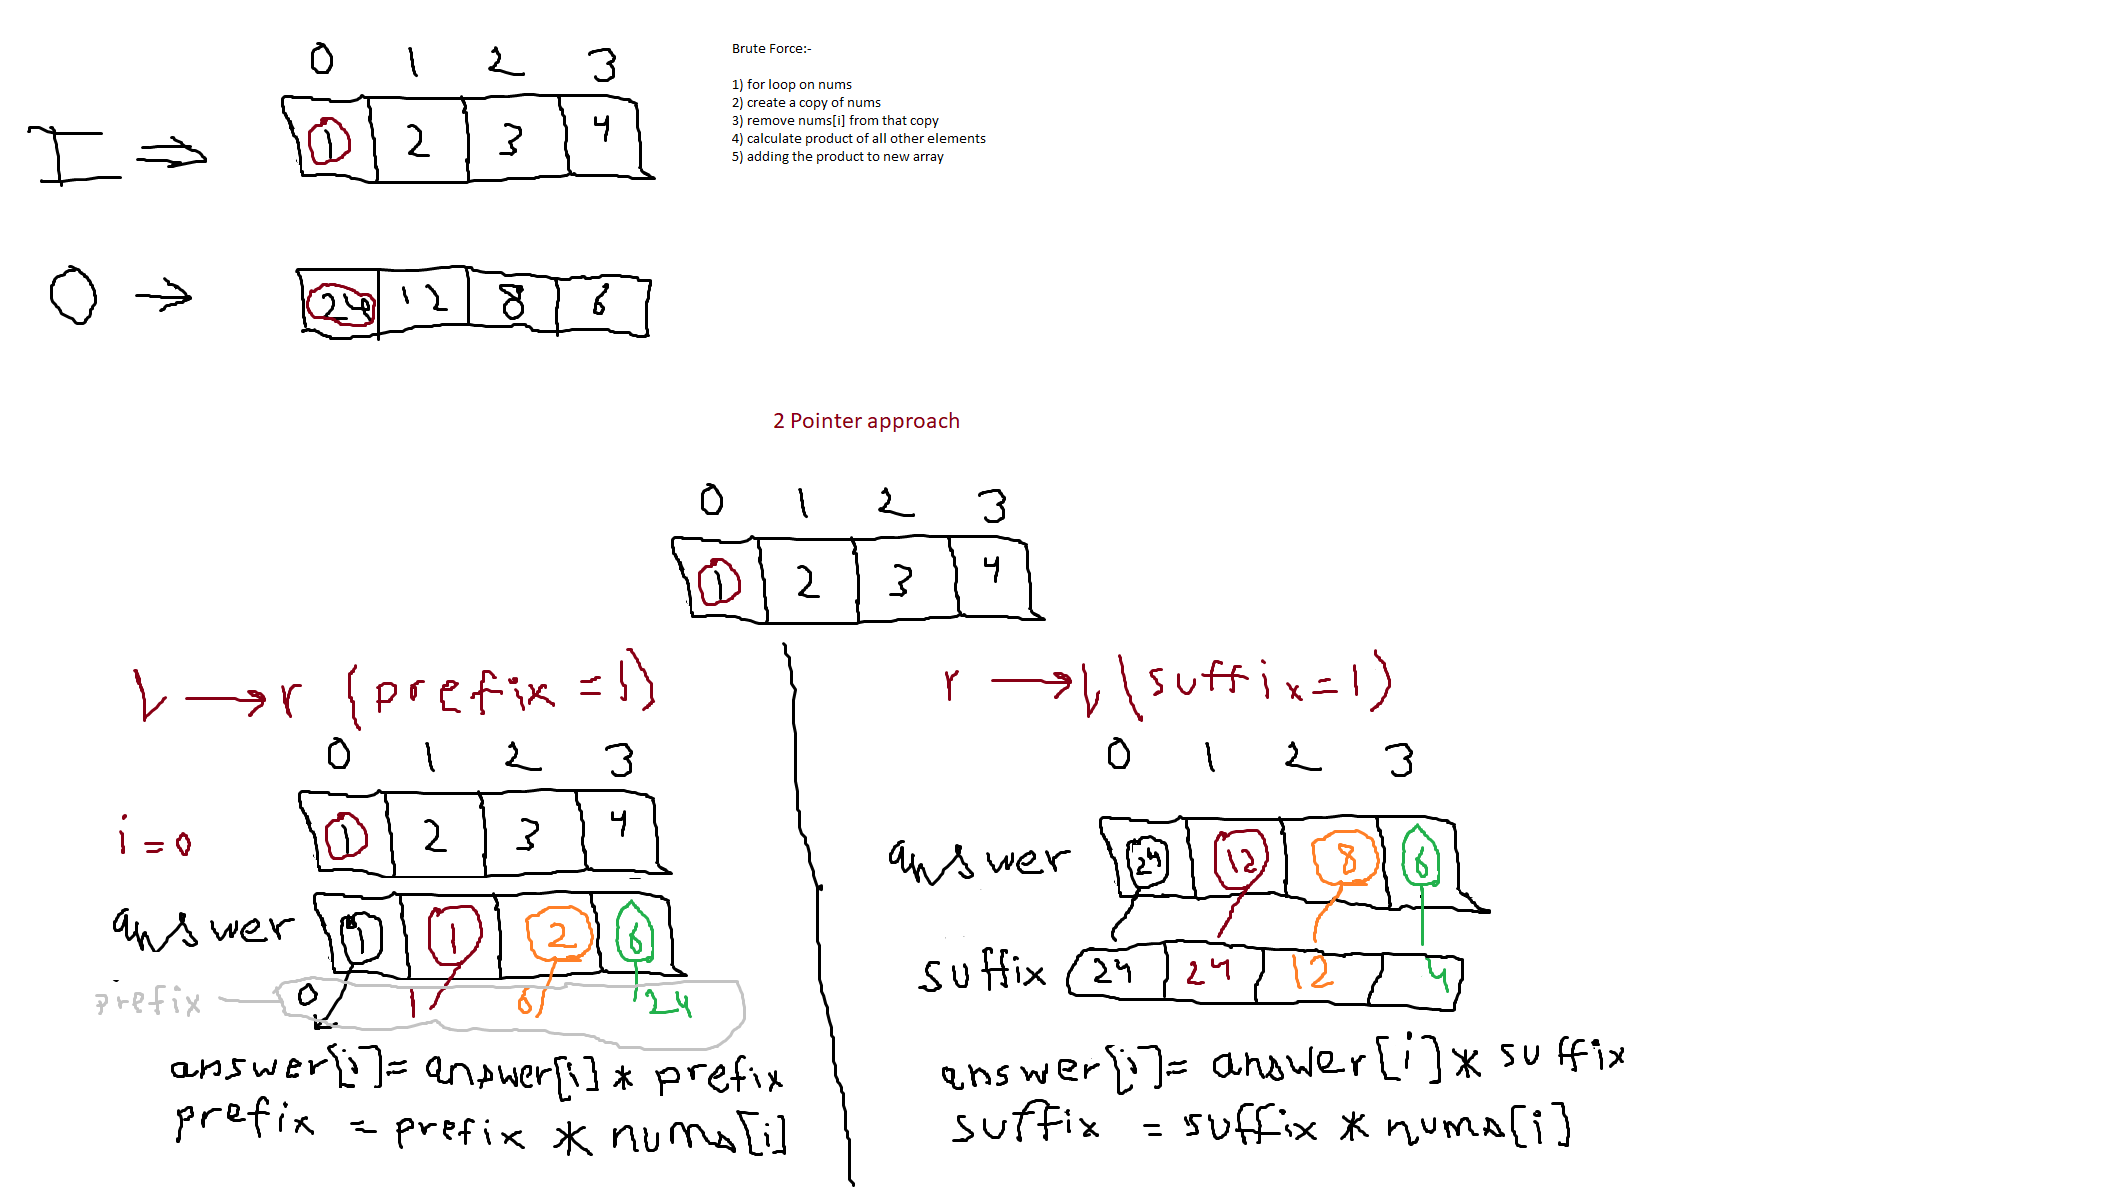 0 1 2 3
I ⇒ 1 2 3 4
Brute Force:-
1) for loop on nums
2) create a copy of nums
3) remove nums[i] from that copy
4) calculate product of all other elements
5) adding the product to new array
O → 24 12 8 6
2 Pointer approach
0 1 2 3
1 2 3 4
l → r (prefix = 1)
0 1 2 3
i = 0 1 2 3 4
answer 1 1 2 6
prefix 0 1 6 24
answer[i] = answer[i] * prefix
prefix = prefix * nums[i]
r → l (suffix = 1)
0 1 2 3
answer 24 12 8 6
suffix 24 24 12 4
answer[i] = answer[i] * suffix
suffix = suffix * nums[i]